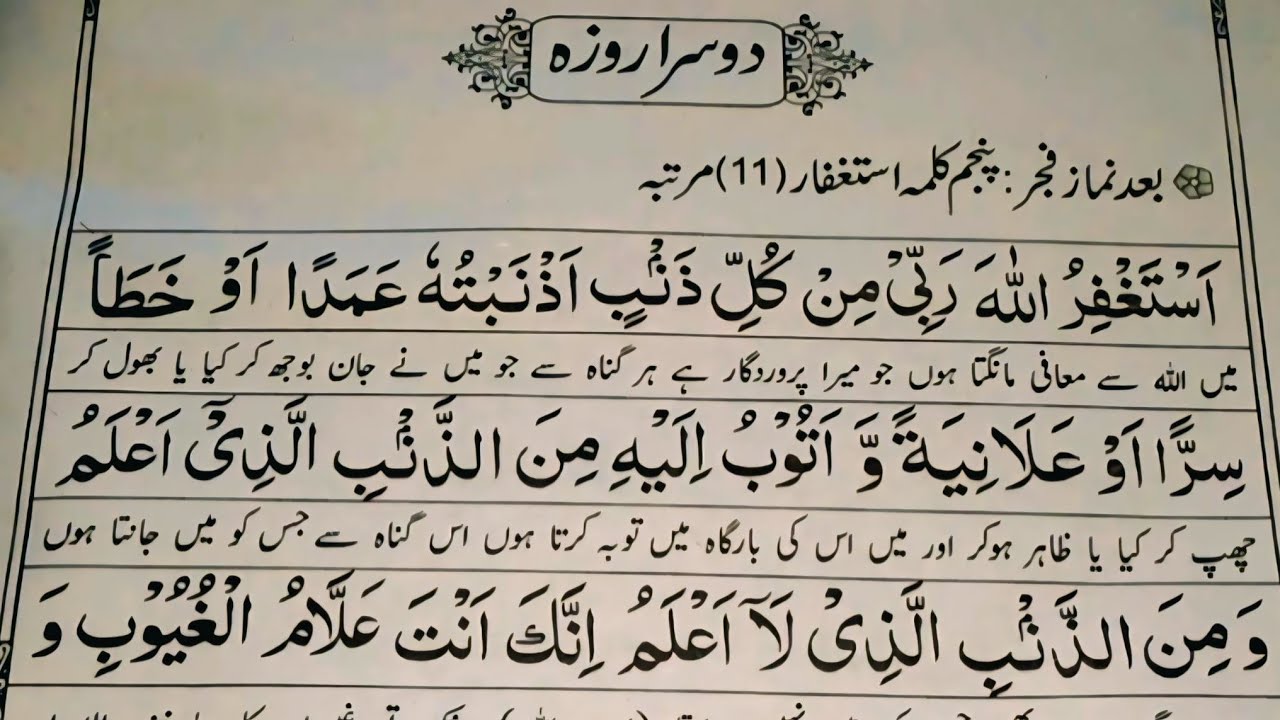 دوسرا روزہ
بعد نماز فجر: پنجم کلمہ استغفار (11) مرتبہ
اَسْتَغْفِرُ اللّٰهَ رَبِّىْ مِنْ كُلِّ ذَنْۢبٍ اَذْنَبْتُهٗ عَمَدًا اَوْ خَطَاً
میں اللہ سے معافی مانگتا ہوں جو میرا پروردگار ہے ہر گناہ سے جو میں نے جان بوجھ کر کیا یا بھول کر
سِرًّا اَوْ عَلَانِيَةً وَّ اَتُوْبُ اِلَيْهِ مِنَ الذَّنْۢبِ الَّذِىْٓ اَعْلَمُ
چھپ کر کیا یا ظاہر ہوکر اور میں اس کی بارگاہ میں توبہ کرتا ہوں اس گناہ سے جس کو میں جانتا ہوں
وَ مِنَ الذَّنْۢبِ الَّذِىْ لَآ اَعْلَمُ اِنَّكَ اَنْتَ عَلَّامُ الْغُيُوْبِ وَ